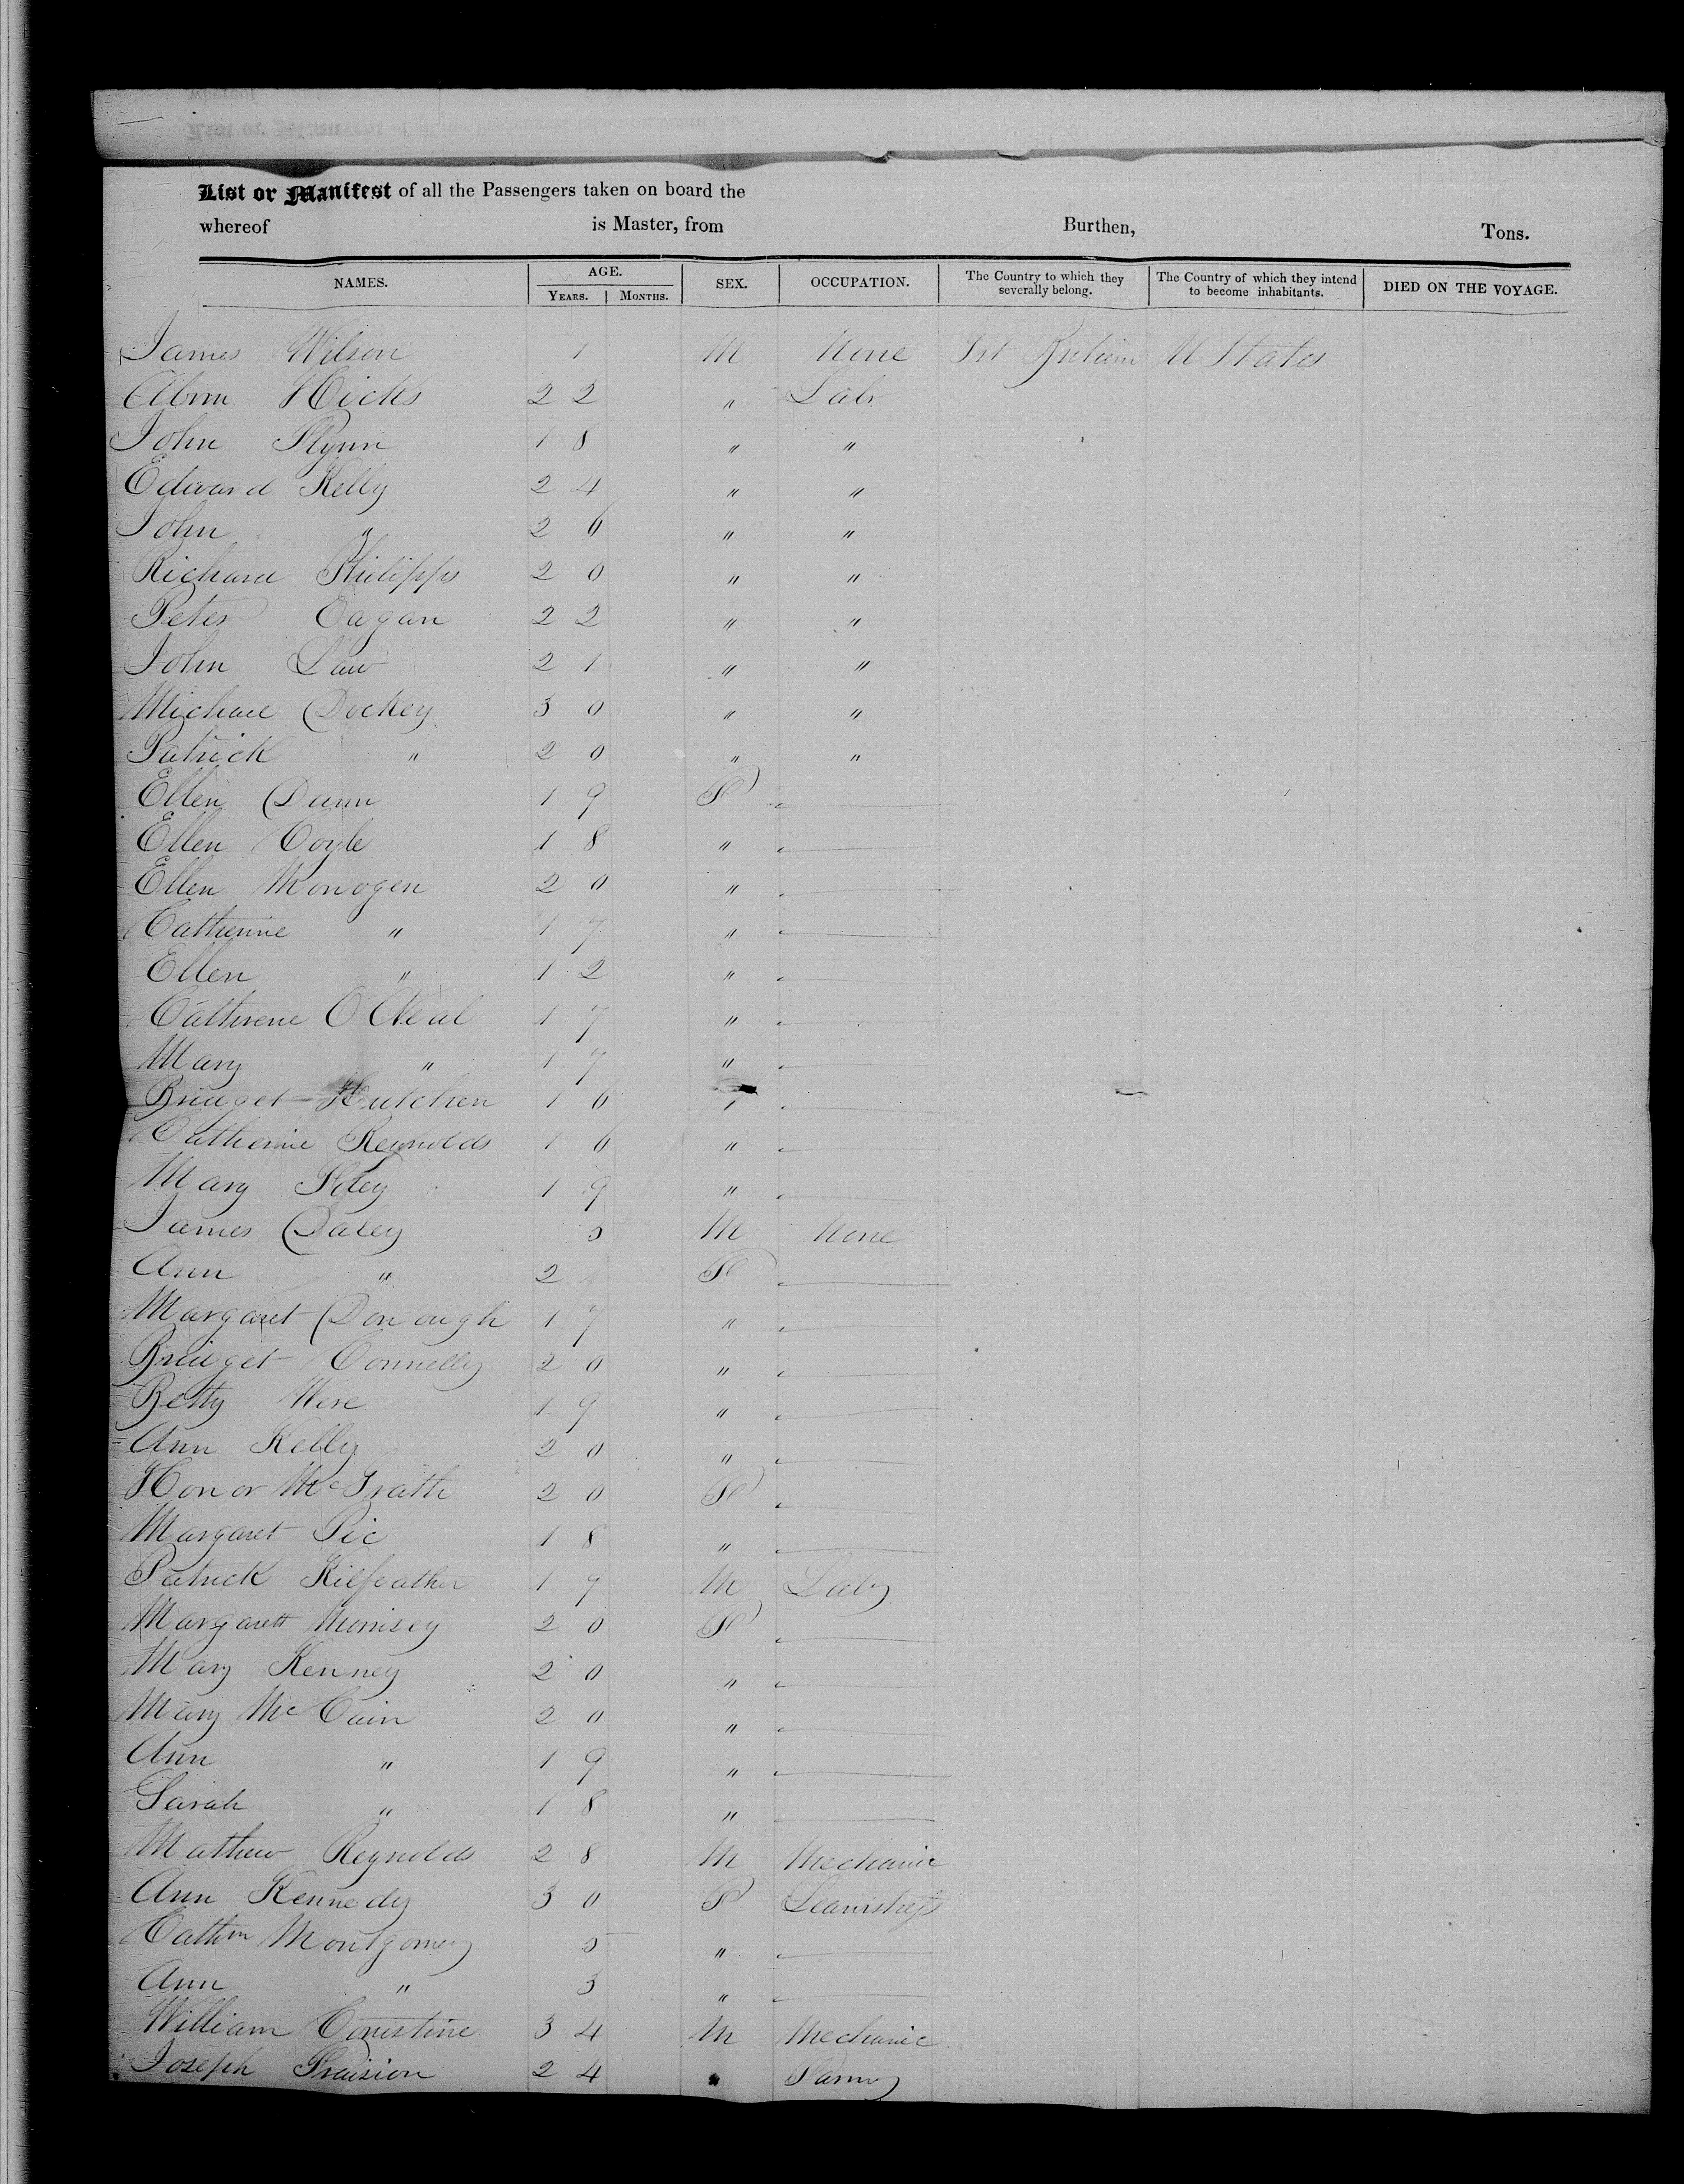 List or Manifest of all the Passengers taken on board the
whereof is Master, from Burthen, Tons.
NAMES. AGE. YEARS. MONTHS. SEX. OCCUPATION. The Country to which they severally belong. The Country of which they intend to become inhabitants. DIED ON THE VOYAGE.
James Wilson 1 M None Grt Britain U States
Abm Hicks 22 " Labr
John Flynn 18 " "
Edward Kelly 24 " "
John " 26 " "
Richard Philipps 20 " "
Peter Eagan 22 " "
John Law 21 " "
Michael Dockey 30 " "
Patrick " 20 " "
Ellen Dunn 19 F
Ellen Coyle 18 "
Ellen Monogen 20 "
Catherine " 17 "
Ellen " 12 "
Catherine O Neal 17 "
Mary " 17 "
Bridget Hutchen 16 "
Catherine Reynolds 16 "
Mary 19 "
James Daley 5 M None
Ann " 2 F
Margaret Donough 17 "
Bridget Connelly 20 "
Betty Were 19 "
Ann Kelly 20 "
Honor McGrath 20 F
Margaret 18 "
Patrick Kilfeather 17 M Labr
Margarett Morrisey 20 F
Mary Kenney 20 "
Mary McCain 20 "
Ann " 19 "
Sarah " 18 "
Mathew Reynolds 28 M Mechanic
Ann Kennedy 30 F
Cathrn Montgomery 5 "
Ann " 3 "
William 34 M Mechanic
Joseph 24 " Farmr